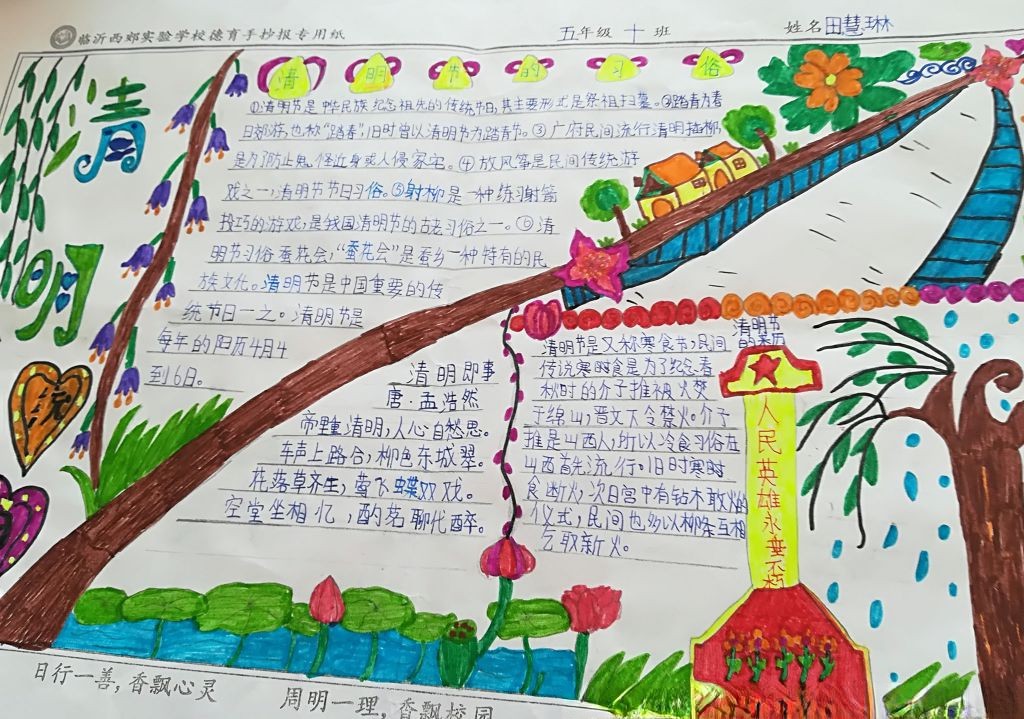 临沂西郊实验学校德育手抄报专用纸
五年级十班
姓名田慧琳
清明
清明节的习俗
①清明节是中华民族纪念祖先的传统节日,其主要形式是祭祖扫墓。②踏青为春
日郊游,也称“踏春”旧时曾以清明节为踏青节。③广府民间流行清明插柳
是为了防止鬼怪近身或入侵家宅。④放风筝是民间传统游
戏之一,清明节节日习俗。⑤射柳是一种练习射箭
技巧的游戏,是我国清明节的古老习俗之一。⑥清
明节习俗蚕花会,“蚕花会”是蚕乡一种特有的民
族文化。清明节是中国重要的传
统节日一之。清明节是
每年的阳历4月4
到6日。
清明即事
唐·孟浩然
帝里清明,人心自愁思。
车声上路合,柳色东城翠。
花落草齐生,莺飞蝶双戏。
空堂坐相忆,酌茗聊代醉。
清明节
的来历
清明节是又称寒食节,民间
传说寒时食是为了纪念春
秋时的介子推被火焚
于绵山,晋文下令禁火。介子
推是山西人,所以冷食习俗在
山西首先流行。旧时寒时
食断火,次日宫中有钻木取火的
仪式,民间也多以柳条互相
乞取新火。
人民英雄永垂不朽
日行一善,香飘心灵
周明一理,香飘校园